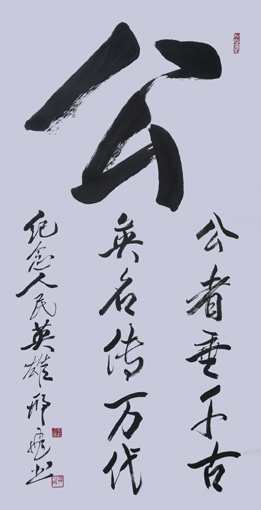 公
公者垂千古
英名传万代
纪念人民英雄邢